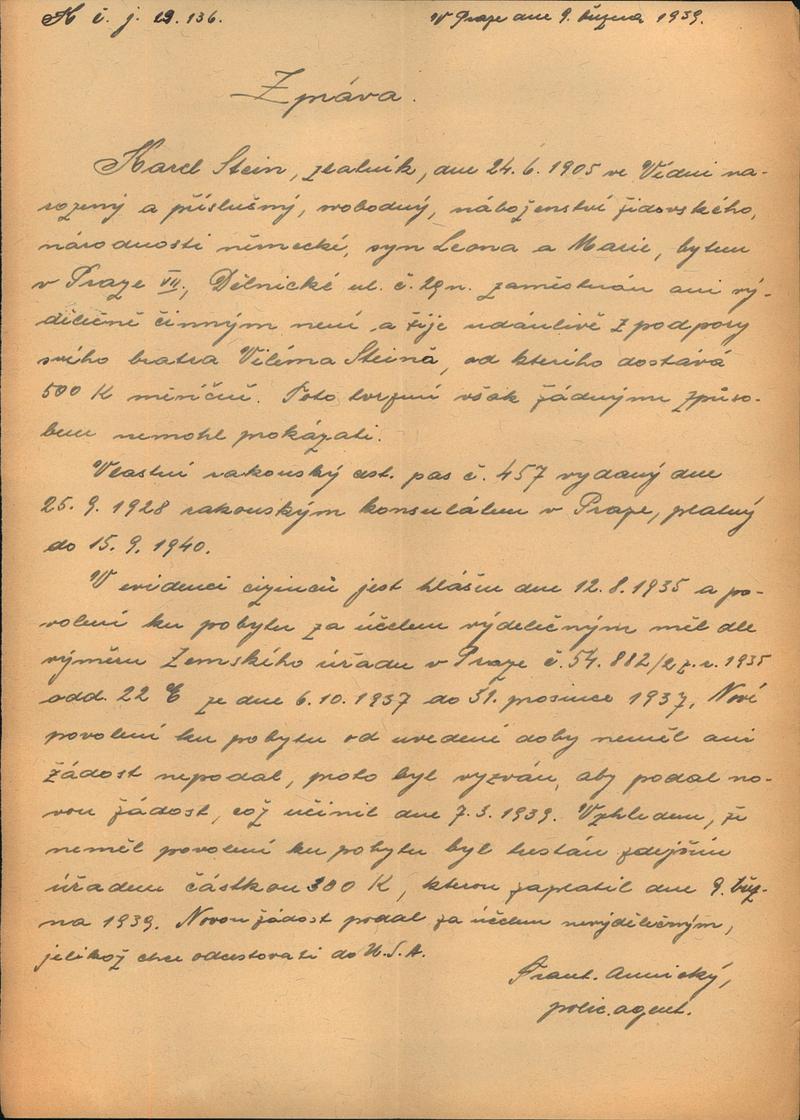 K č. j. 19.136. V Praze dne 9. března 1939.
Zpráva.
Karel Stein, zlatník, dne 24. 6. 1905 ve Vídni na-
rozený a příslušný, svobodný, náboženství židovského,
národnosti německé, syn Leona a Marie, bytem
v Praze VII., Dělnické ul. č. 29 n. zaměstnán ani vý-
dělečně činným není a žije udánlivě z podpory
svého bratra Viléma Steina, od kterého dostává
500 K měsíčně. Toto tvrzení však žádným způso-
bem nemohl prokázati.
Vlastní rakouský cest. pas č. 457 vydaný dne
25. 9. 1928 rakouským konsulátem v Praze, platný
do 15. 9. 1940.
V evidenci cizinců jest hlášen dne 12. 8. 1935 a po-
volení ku pobytu za účelem výdělečným měl dle
výměru Zemského úřadu v Praze č. 54.882/2 z. r. 1935
odd. 22 E ze dne 6. 10. 1937 do 31. prosince 1937. Nové
povolení ku pobytu od uvedené doby neměl ani
žádost nepodal, proto byl vyzván, aby podal no-
vou žádost, což učinil dne 7. 3. 1939. Vzhledem, že
neměl povolení ku pobytu byl trestán zdejším
úřadem částkou 300 K, kterou zaplatil dne 9. břez-
na 1939. Novou žádost podal za účelem nevýdělečným,
jelikož chce odcestovati do U.S.A.
Frant.
polic. agent.